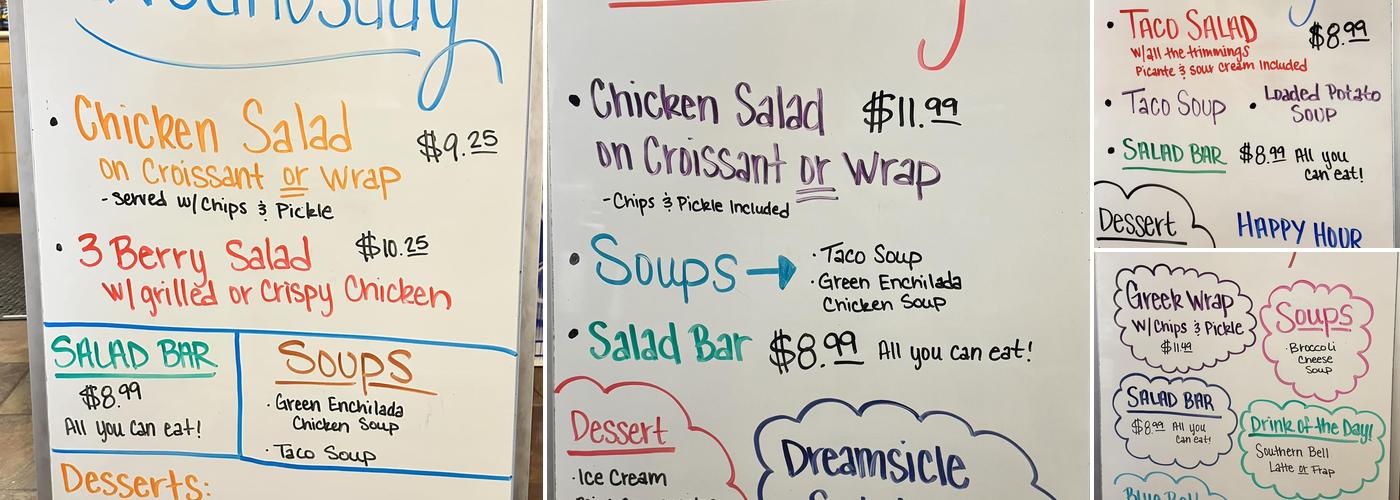 Wednesday
• Chicken Salad $9.25
on Croissant or Wrap
- Served w/Chips & Pickle
• 3 Berry Salad $10.25
w/grilled or Crispy Chicken
SALAD BAR
$8.99
All you can eat!
SOUPS
· Green Enchilada
Chicken Soup
· Taco Soup
Desserts:
• Chicken Salad $11.99
on Croissant or Wrap
- Chips & Pickle Included
• Soups →
· Taco Soup
· Green Enchilada
Chicken Soup
• Salad Bar $8.99 All you can eat!
Dessert
· Ice Cream
Dreamsicle
• TACO SALAD $8.99
w/all the trimmings
Picante & Sour Cream Included
• Taco Soup • Loaded Potato
Soup
• SALAD BAR $8.99 All you
can eat!
Dessert
HAPPY HOUR
Greek Wrap
W/Chips & Pickle
$11.49
Soups
· Broccoli
Cheese
Soup
SALAD BAR
$8.99 All you
can eat!
Drink of the Day!
Southern Bell
Latte or Frap